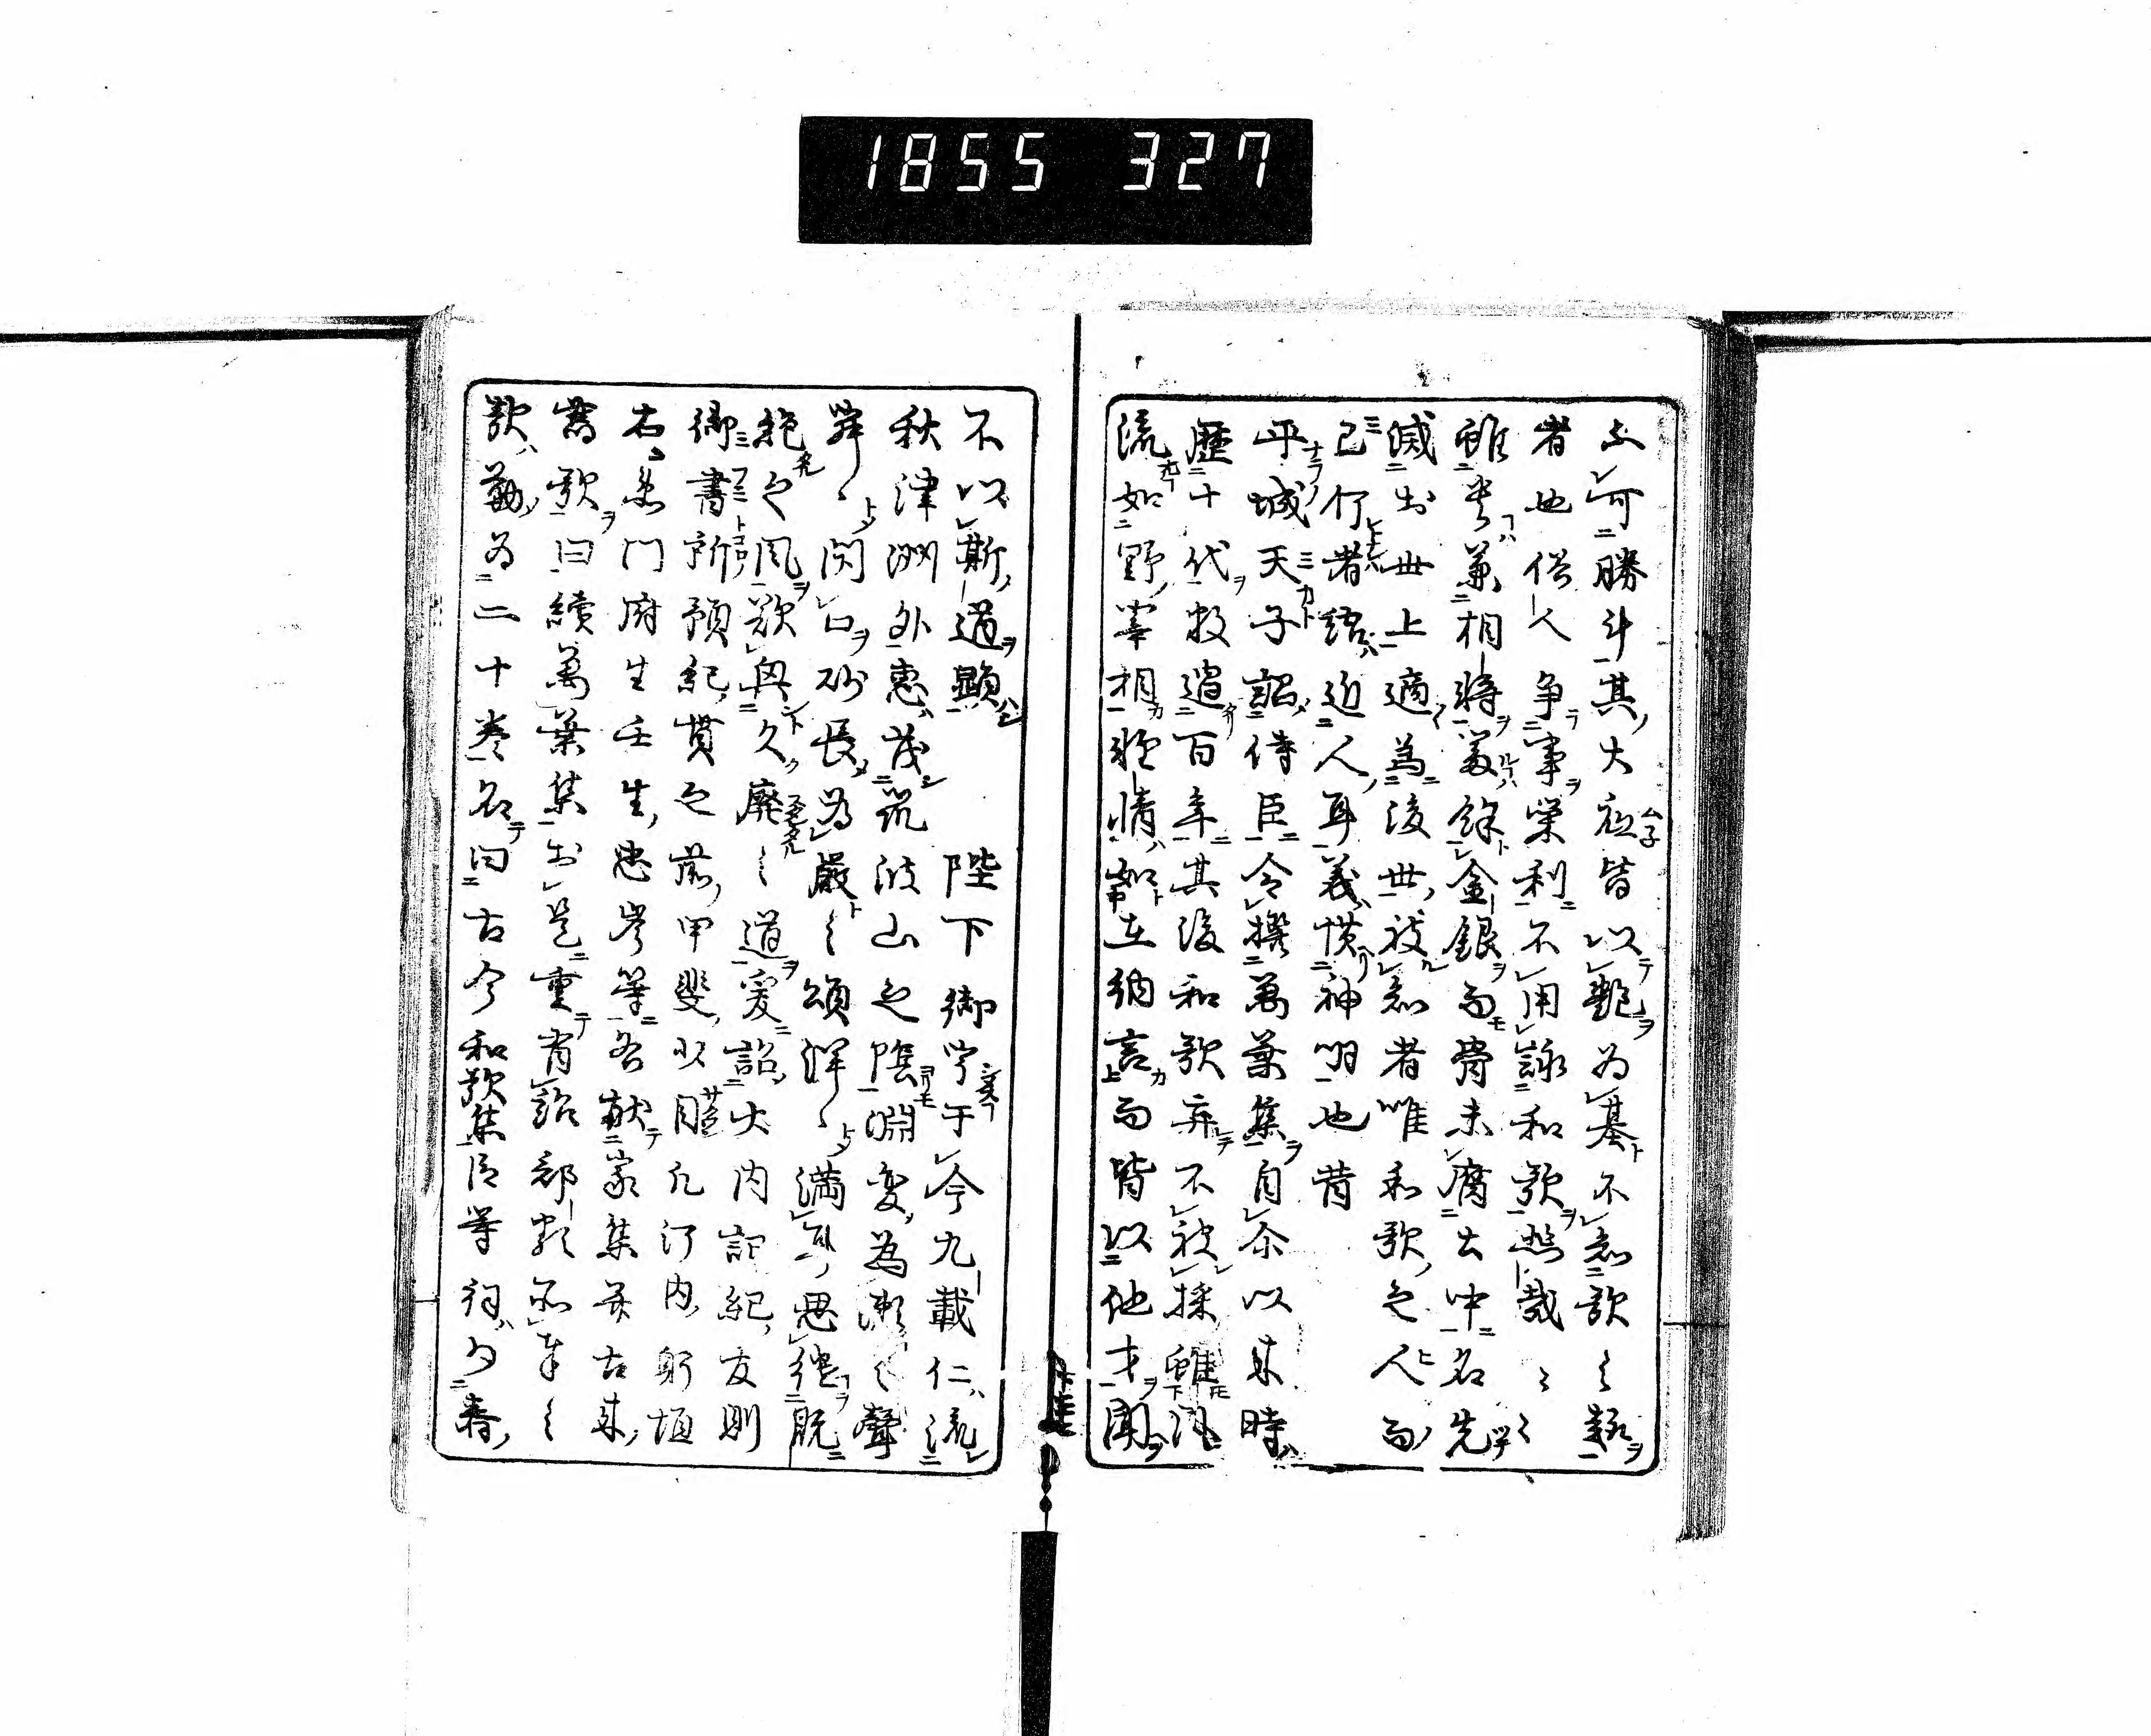 1855 327
可勝斗其大祇皆以艶為基不知歌之趣
者也俗人争事栄利不用詠和歌悲哉〻〻
雖貴兼相將冨餘金銀而骨未腐土中名先
滅於世上適為後世被知者唯和歌之人而
已何者語近人耳義慣神明也昔
平城天子詔侍臣令撰萬葉集自尒以来時
歴十代数過百年其後和歌弃不被採雖風
流如野宰相雅情如在納言而皆以他才聞
不以斯道顕　陛下御宇于今九載仁流
秋津洲外恵茂筑波山之陰淵変為瀬之聲
寂〻閉口砂長為巌之頌洋〻満耳思継既
絶之風欲興久廃之道爰詔大内記紀友則
御書所預紀貫之前甲斐少目凡河内躬恒
右衛門府生壬生忠岑等各献家集并古来
舊歌曰續萬葉集於是重有詔部類所奉之
歌勒為二十巻名曰古今和歌集臣等詞少春